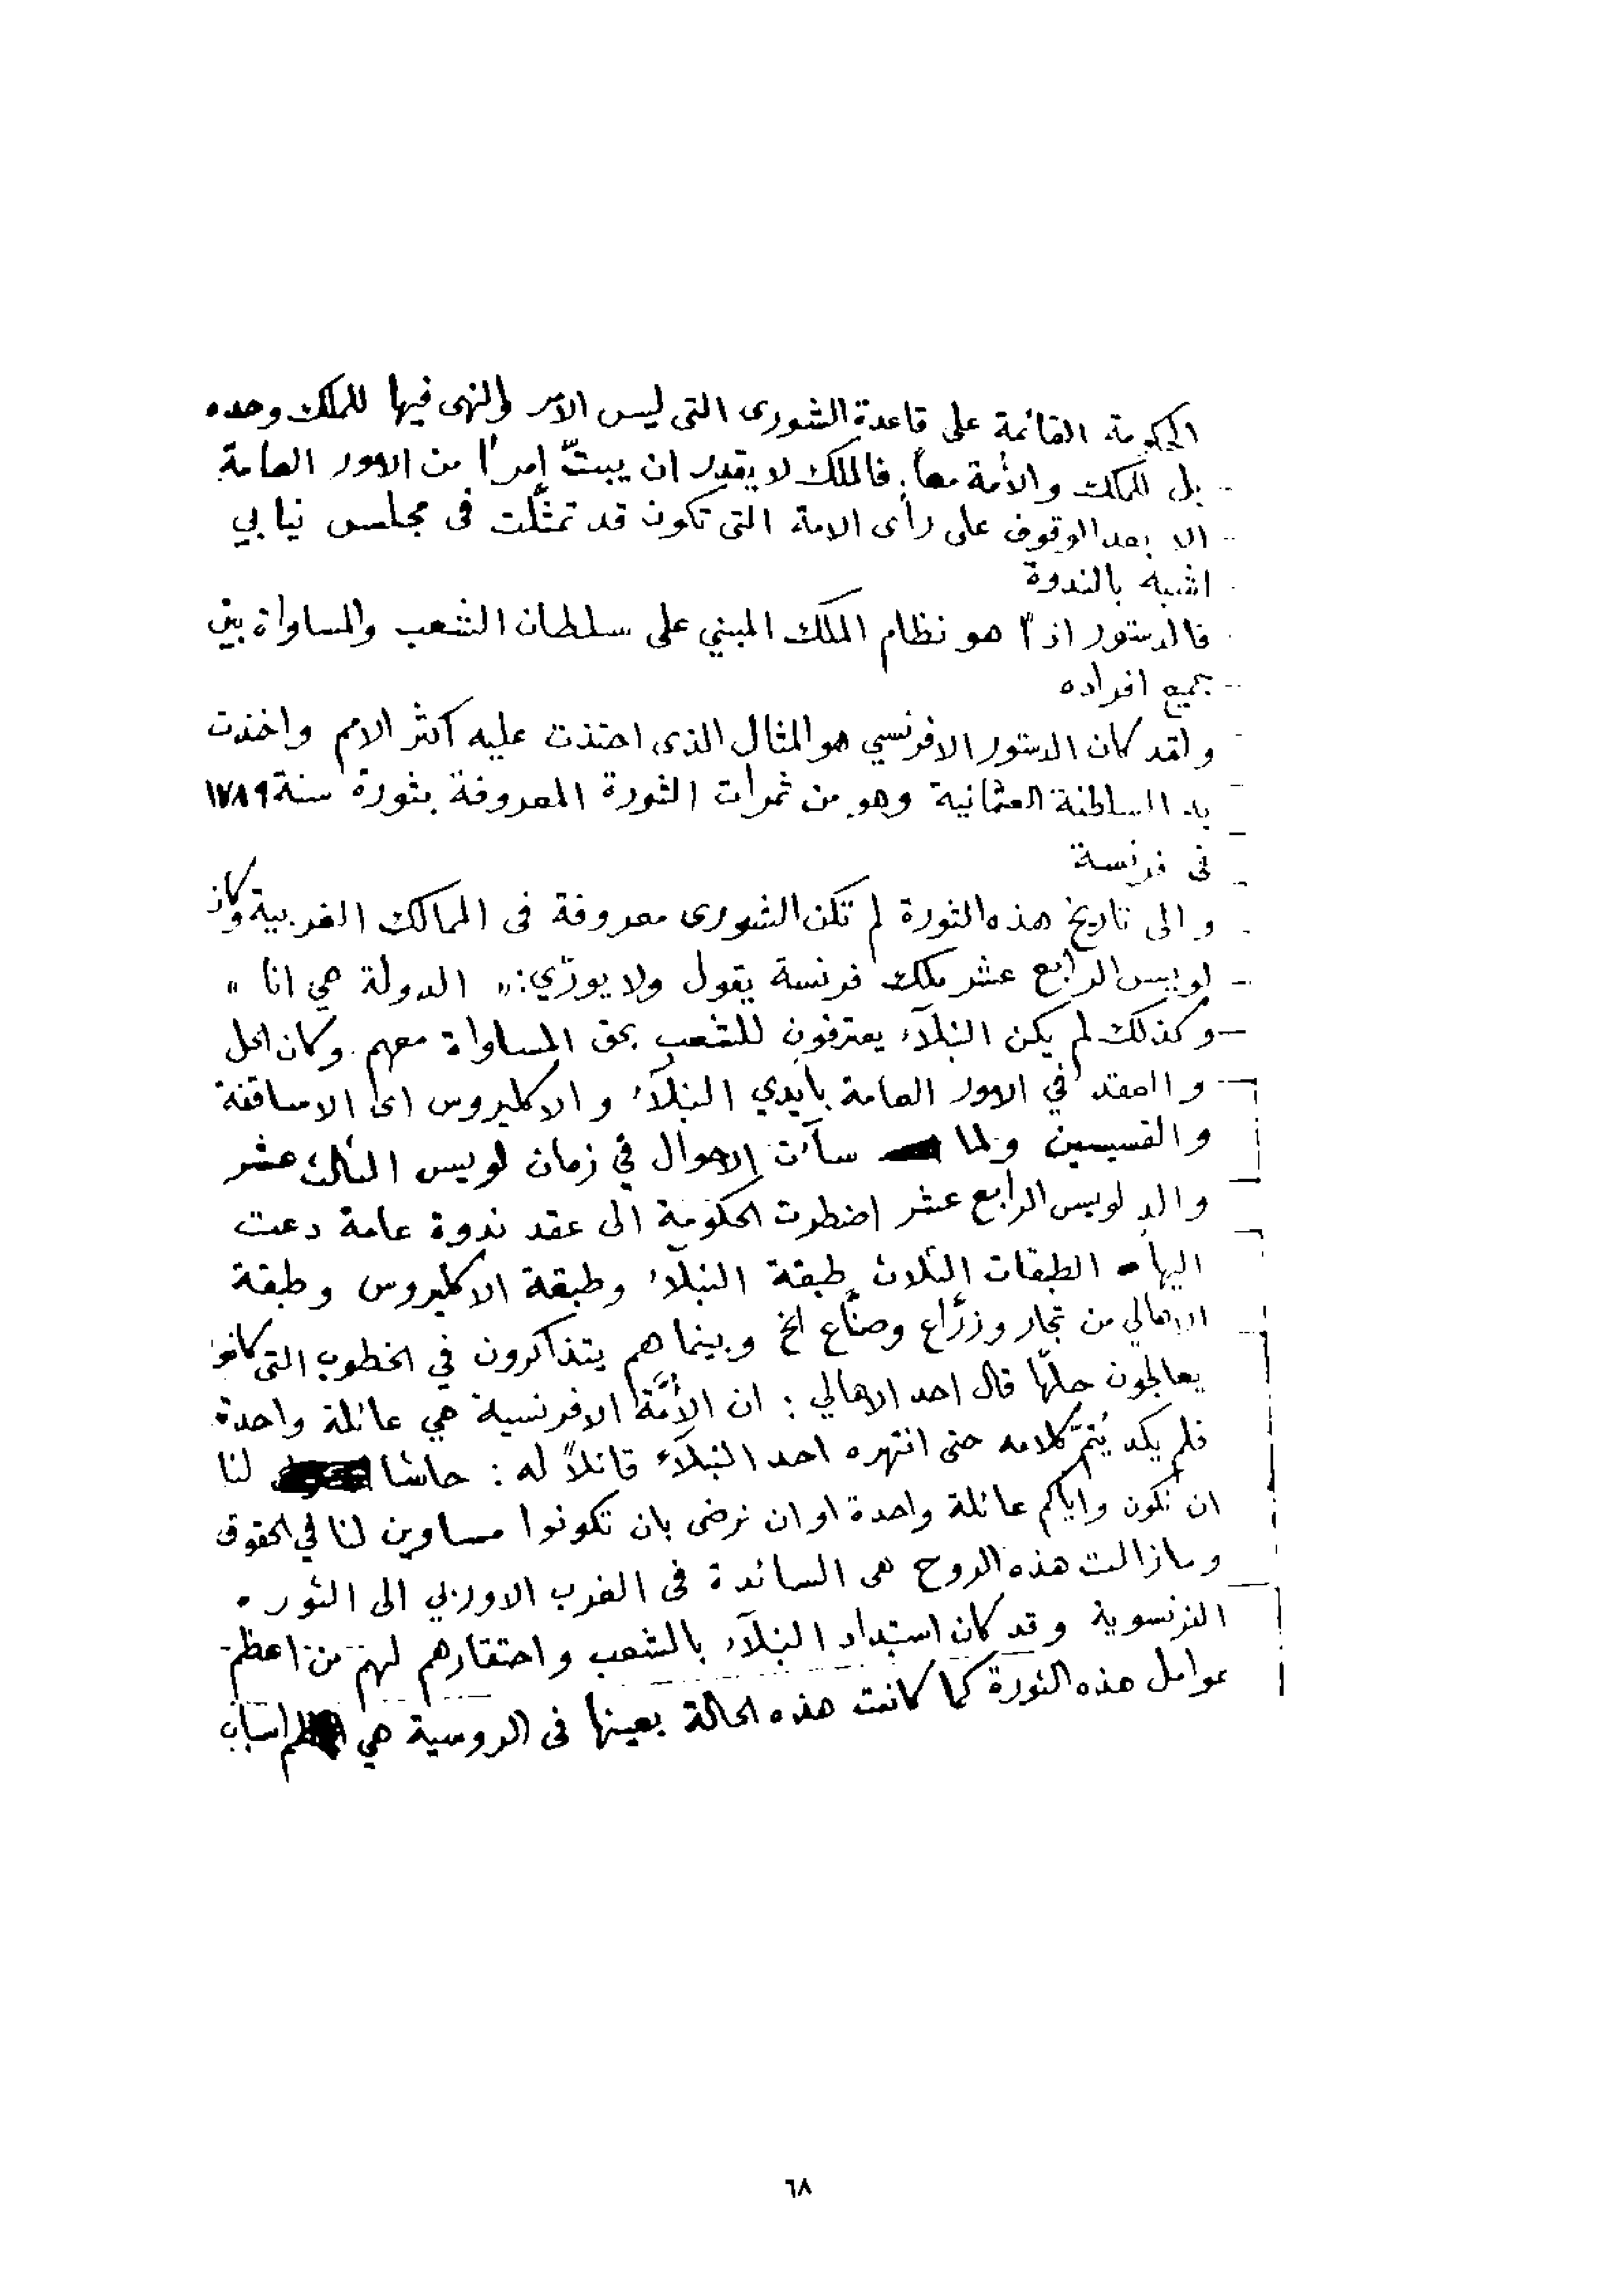 الحكومة القائمة على قاعدة الشورى التى ليس الامر والنهى فيها للملك وحده
بل للملك والأمة معاً. فالملك لا يقدر ان يبتّ امراً من الامور العامة
الا بعد الوقوف على رأى الامة التى تكون قد تمثّلت فى مجلس نيابي
اشبه بالندوة
فالدستور اذاً هو نظام الملك المبني على سلطان الشعب والمساواة بين
جميع افراده
ولقد كان الدستور الافرنسي هو المثال الذى احتذت عليه اكثر الامم واخذت
به السلطنة العثمانية وهو من ثمرات الثورة المعروفة بثورة سنة ١٧٨٩
فى فرنسة
والى تاريخ هذه الثورة لم تكن الشورى معروفة فى الممالك الغربية وكان
لويس الرابع عشر ملك فرنسة يقول ولا يورّي: « الدولة هي انا »
وكذلك لم يكن النبلآء يعترفون للشعب بحق المساواة معهم. وكان الحل
والعقد في الامور العامة بأيدي النبلآء والاكليروس اى الاساقفة
والقسيسين ولما سآءت الاحوال في زمان لويس الثالث عشر
والد لويس الرابع عشر اضطرت الحكومة الى عقد ندوة عامة دعت
اليها الطبقات الثلاث طبقة النبلآء وطبقة الاكليروس وطبقة
الاهالي من تجار وزرّاع وصنّاع الخ وبينما هم يتذاكرون في الخطوب التى كانوا
يعالجون حلّها قال احد الاهالي : ان الأمَّة الافرنسية هي عائلة واحدة
فلم يكد يُتمّ كلامه حتى انتهره احد النبلآء قائلاً له : حاشا لنا
ان نكون واياكم عائلة واحدة او ان نرضى بان تكونوا مساوين لنا في الحقوق
وما زالت هذه الروح هى السائدة فى الغرب الاوربي الى الثورة
الفرنسوية وقد كان استبداد النبلآء بالشعب واحتقارهم لهم من اعظم
عوامل هذه الثورة كما كانت هذه الحالة بعينها فى الروسية هي اسباب
٦٨